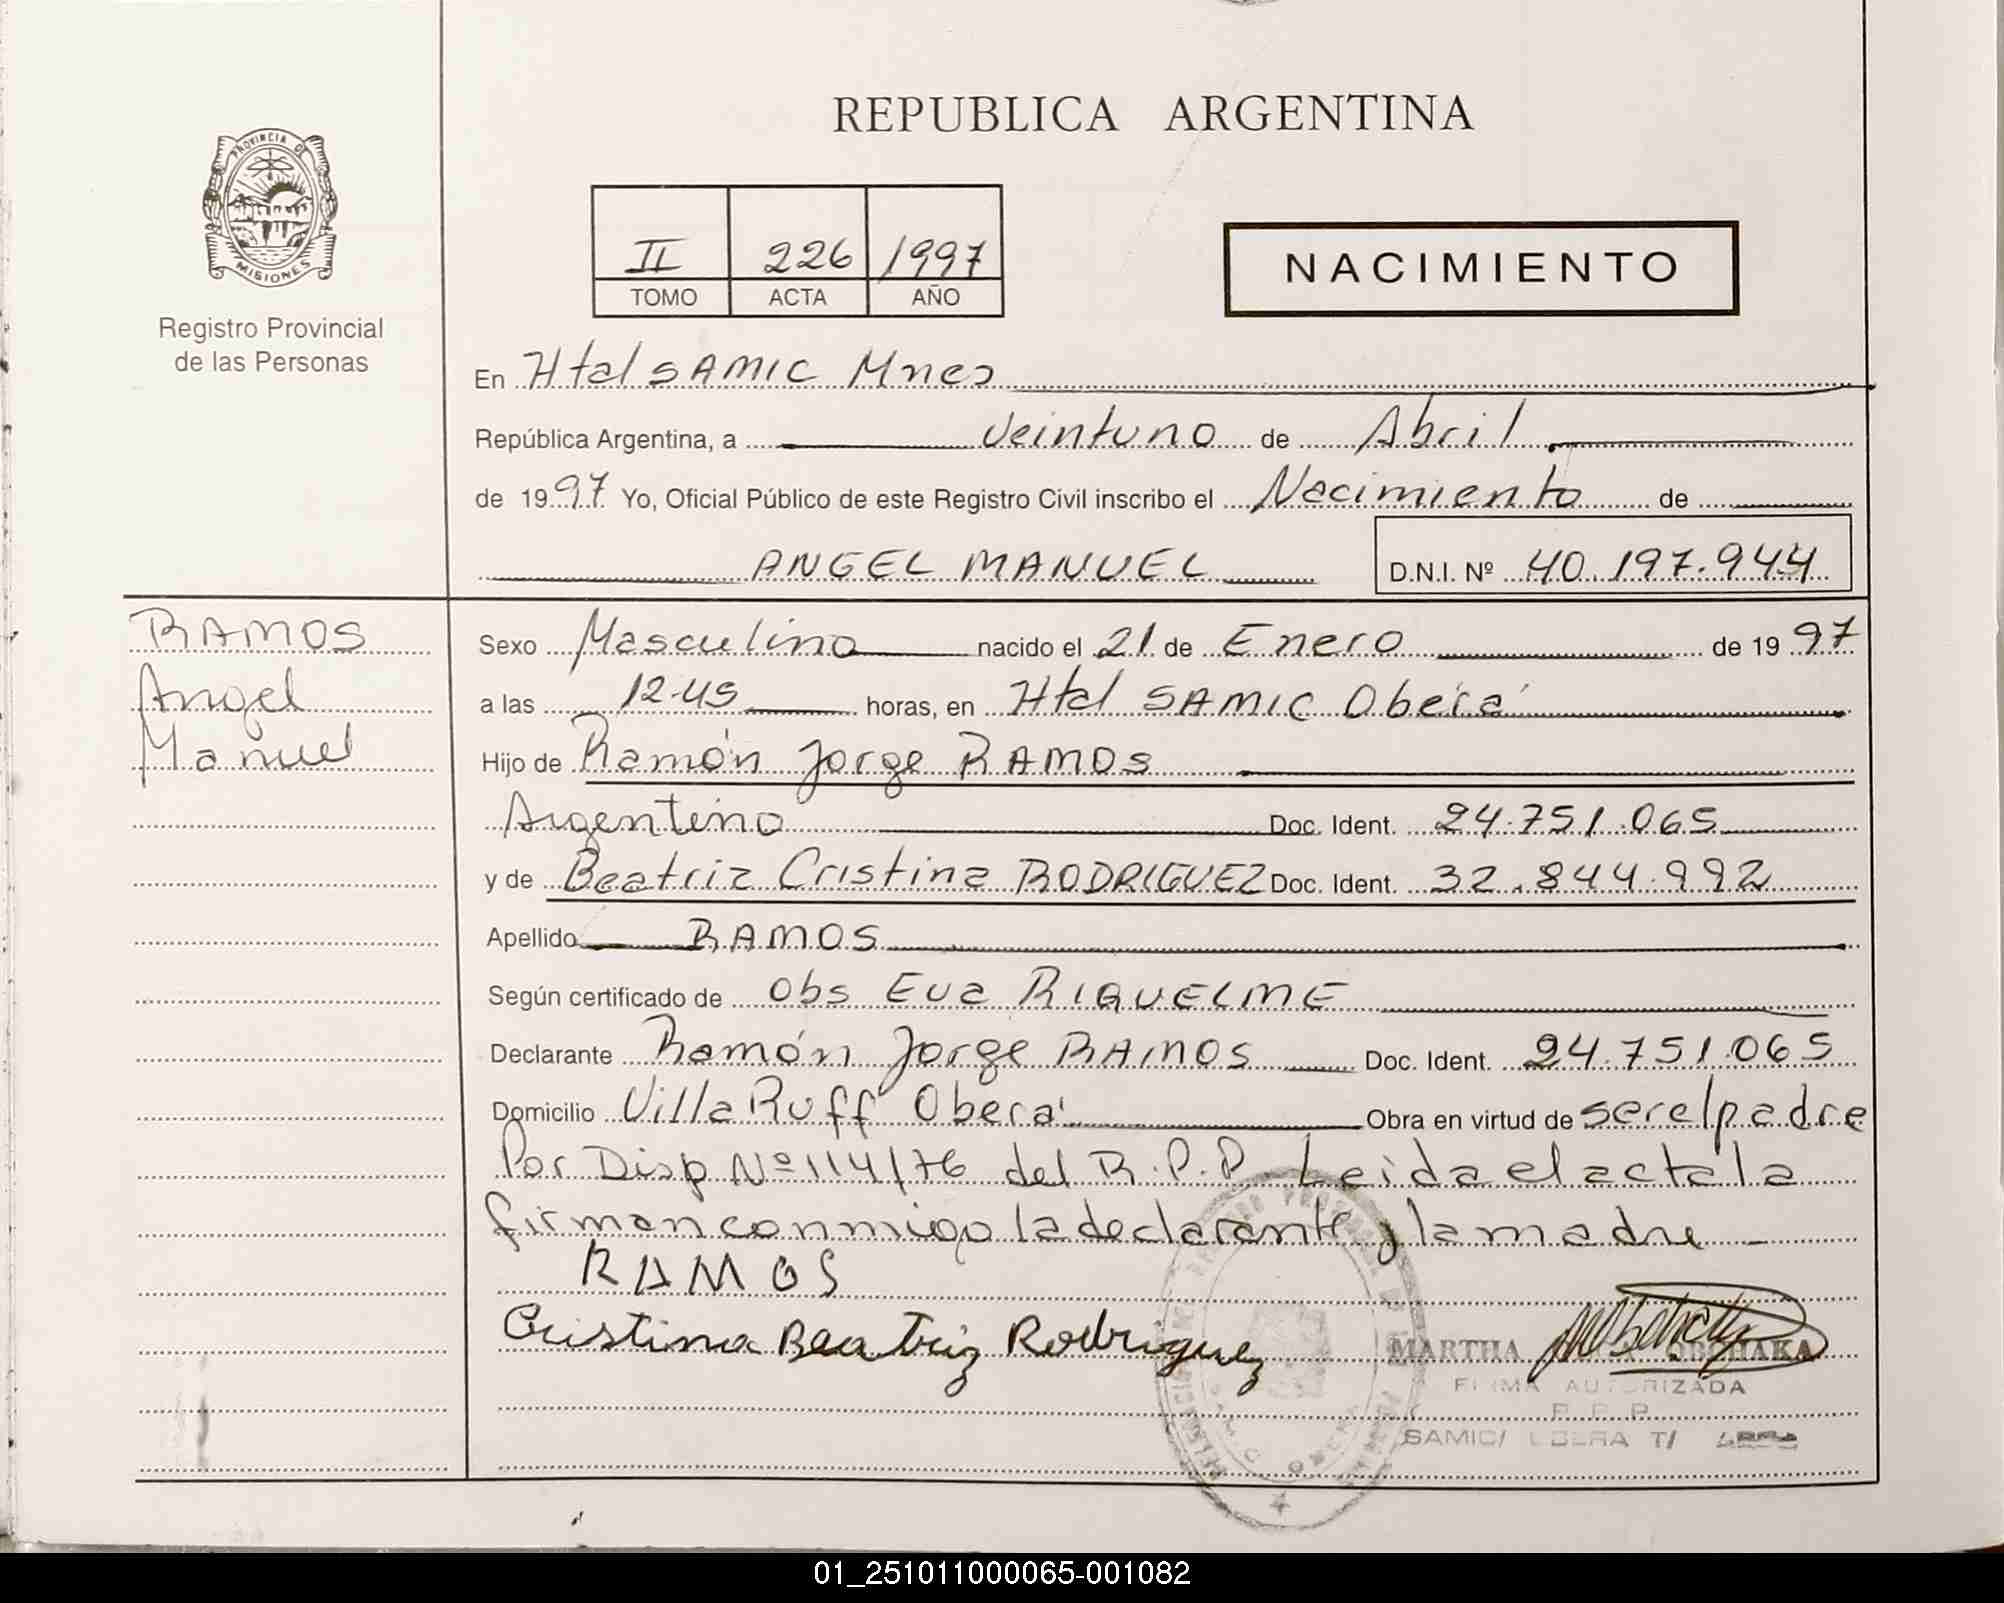 REPUBLICA ARGENTINA
PROVINCIA DE
MISIONES
Registro Provincial
de las Personas
II 226 1997
TOMO ACTA AÑO
NACIMIENTO
En Htal SAMIC Mnes
República Argentina, a veintuno de Abril
de 1997 Yo, Oficial Público de este Registro Civil inscribo el Nacimiento de
ANGEL MANUEL D.N.I. Nº 40.197.944
RAMOS
Angel
Manuel
Sexo Masculino nacido el 21 de Enero de 1997
a las 12.45 horas, en Htal SAMIC Oberá
Hijo de Ramón Jorge RAMOS
Argentino Doc. Ident. 24.751.065
y de Beatriz Cristina RODRIGUEZ Doc. Ident. 32.844.992
Apellido RAMOS
Según certificado de Obs Eva RIQUELME
Declarante Ramón Jorge RAMOS Doc. Ident. 24.751.065
Domicilio Villa Ruff Oberá Obra en virtud de ser el padre
Por Disp Nº 114/76 del R.P.P Leida el acta la
firman conmigo la declarante y la madre
RAMOS
Cristina Beatriz Rodriguez
MARTHA OBCHAKA
FIRMA AUTORIZADA
R P P
SAMIC/ OBERA T/
01_251011000065-001082